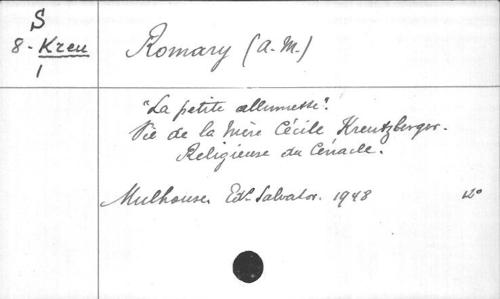 S
8 - Kreu
1
Romary (A.-M.)
"La petite allumette".
Vie de la Mère Cécile Kreutzberger.
Religieuse du Cénacle.
Mulhouse. Ed. Salvator. 1948 12°